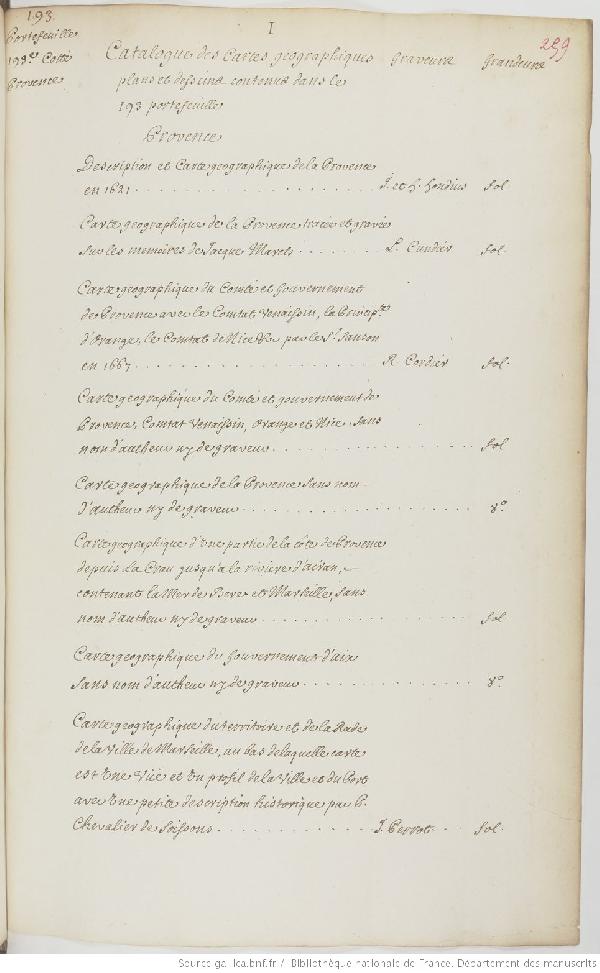 193.
I
259
Portefeuille
193e Cotté
Provence
Catalogue des Cartes geographiques Graveurs Grandeurs
plans et desseins contenus dans le
193 portefeuille
Provence
Description et Carte geographique de la Provence
en 1621 J. et h. hondius fol
Carte geographique de la Provence tracée et gravée
sur les memoires de Jacque Maretz L. Cundier fol.
Carte geographique du Comté et Gouvernement
de Provence avec le Comtat Venaissin, la Princip.té
d'Orange, le Comtat de Nice &c par le Sr. Sanson
en 1667 R. Cordier fol.
Carte geographique du Comté et gouvernement de
Provence, Comtat Venaissin, Orange et Nice. Sans
nom d'autheur ny de graveur fol
Carte geographique de la Provence sans nom
d'autheur ny de graveur 8°
Carte geographique d'Une partie de la côte de Provence
depuis la Crau jusqu'a la riviere
contenant la Mer de Berre et Marseille, sans
nom d'autheur ny de graveur fol
Carte geographique du Gouvernement d'aix
Sans nom d'autheur ny de graveur 8°
Carte geographique du territoire et de la Rade
de la Ville de Marseille, au bas de laquelle carte
est Une Vüe et Un profil de la Ville et du Port
avec Une petite description historique par
Chevalier de Soissons J. Perrot fol.
Source gallica.bnf.fr / Bibliothèque nationale de France. Département des manuscrits